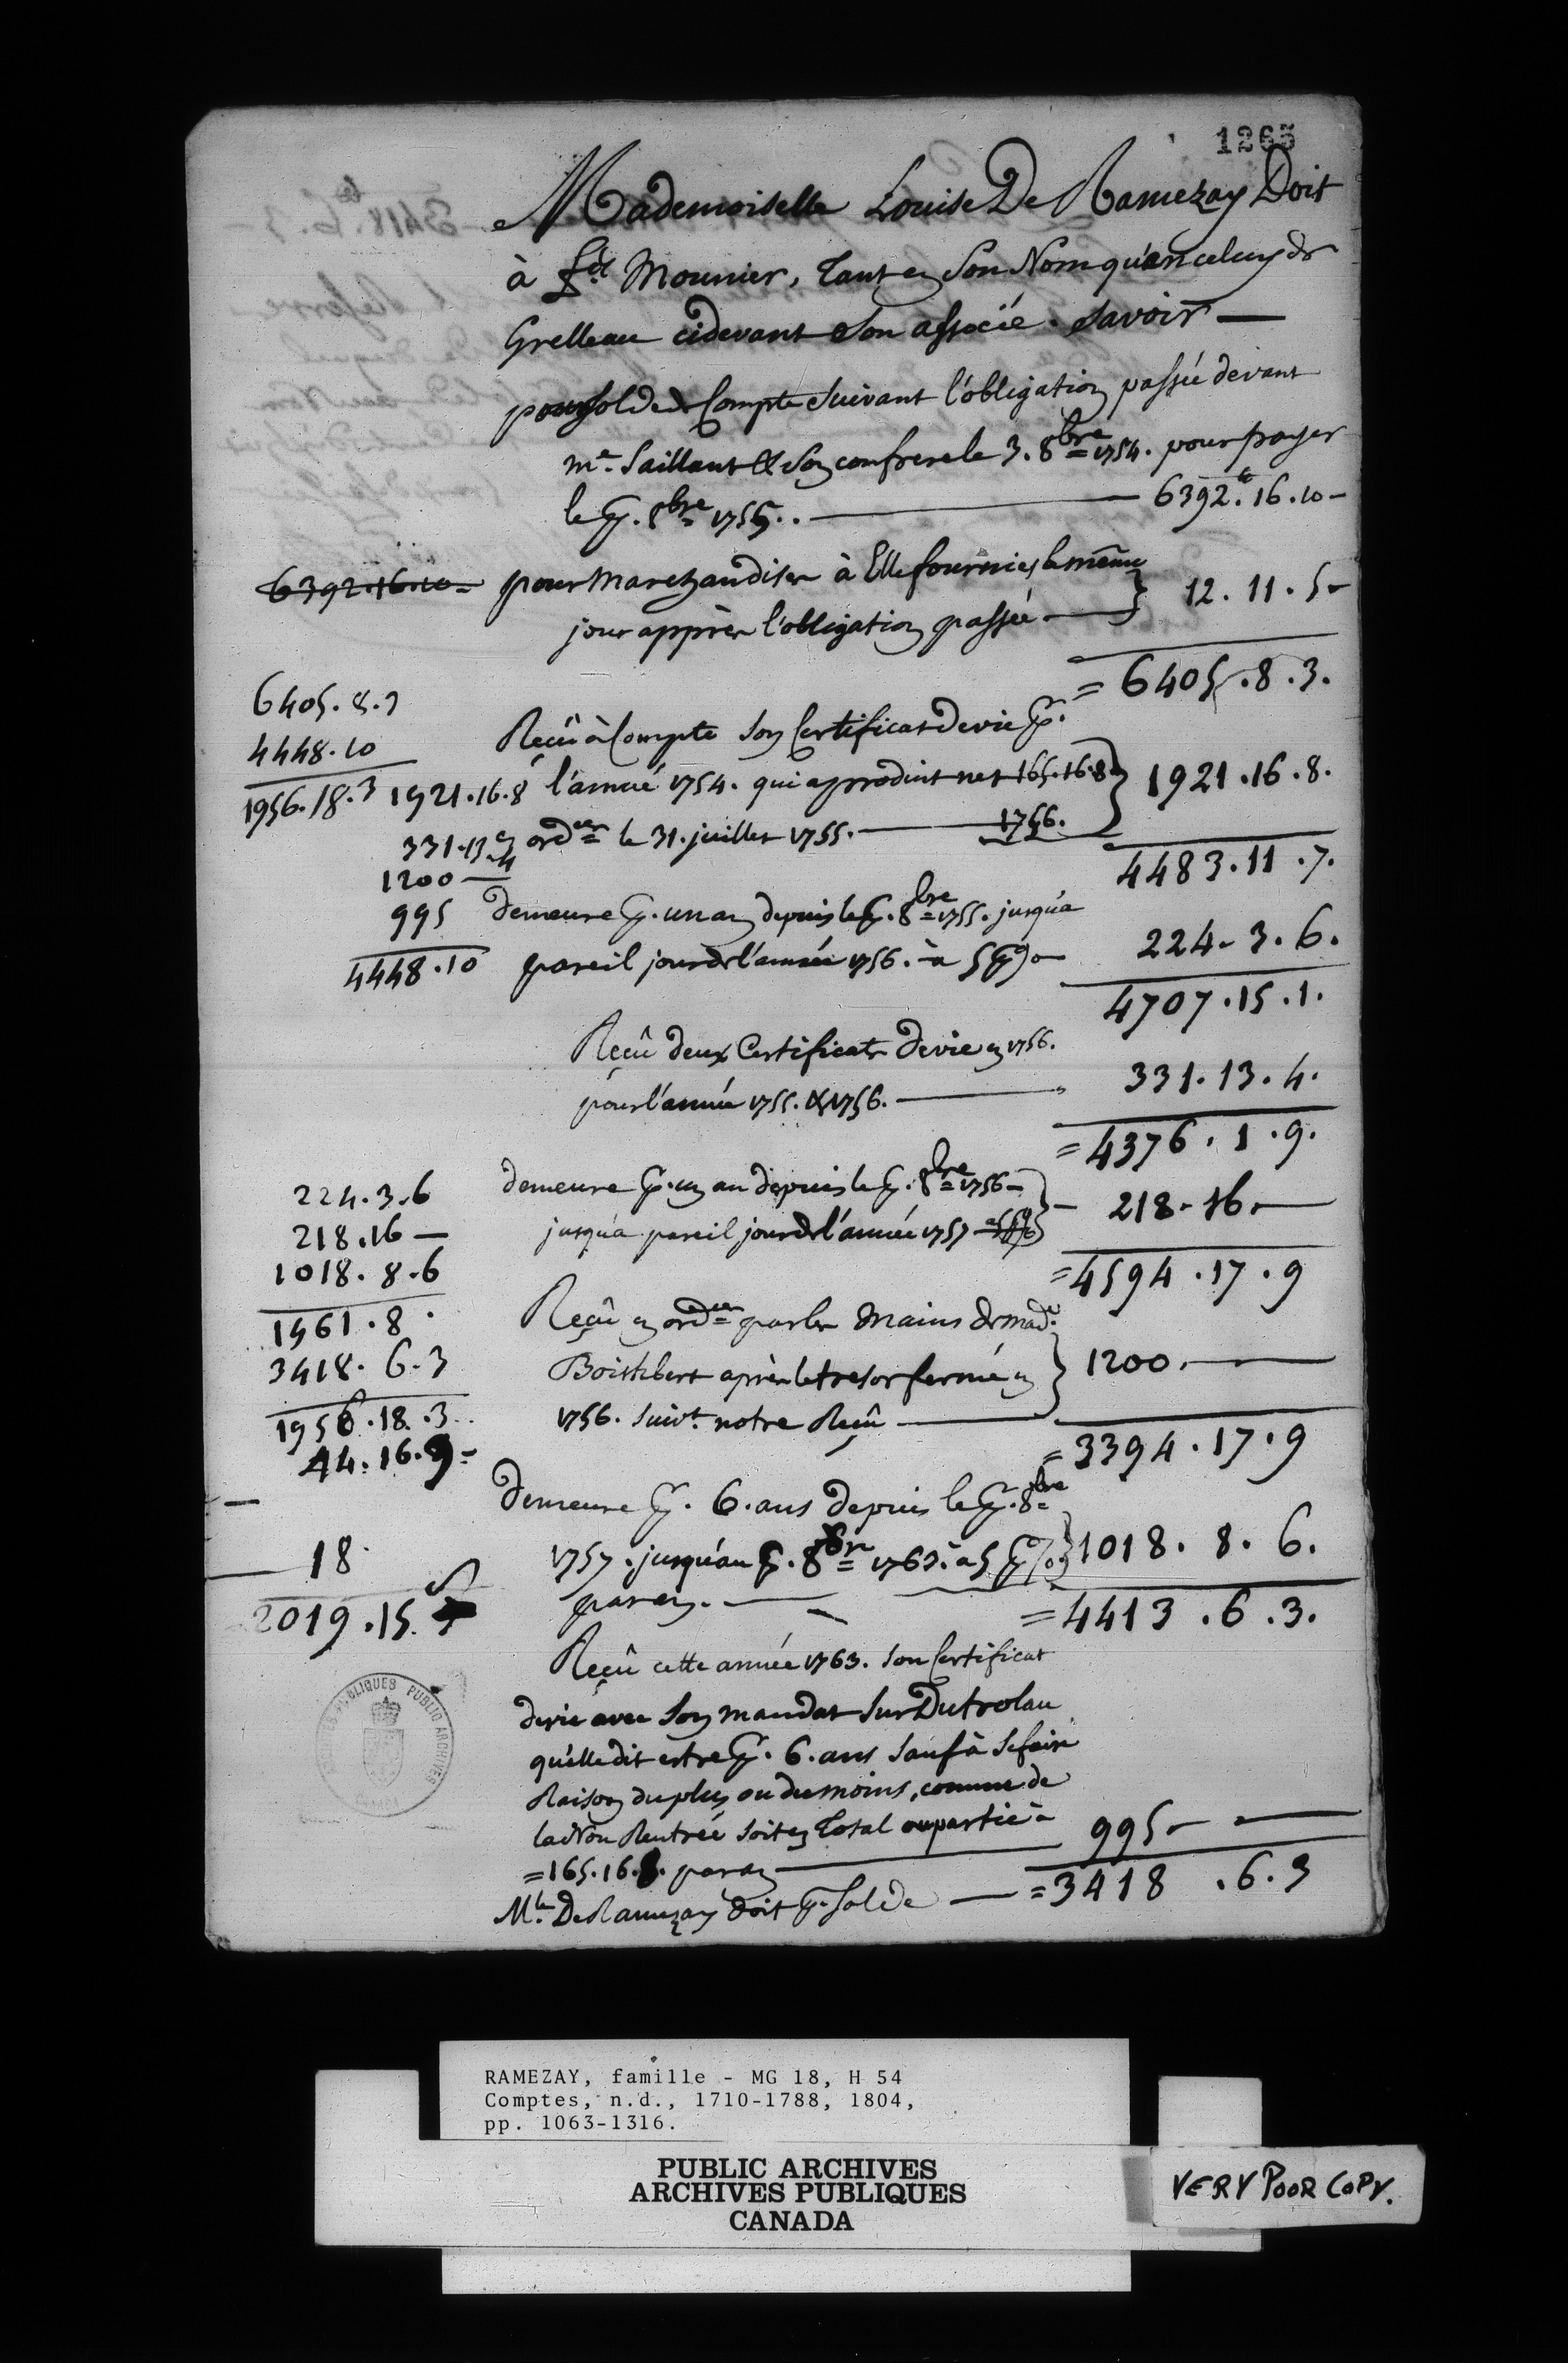 1265
Mademoiselle Louise De Ramezay Doit
à Mounier, tant en Son Nom qu'en celuy de
Grelleau cidevant Son associé. Savoir —
pour solde de Compte Suivant l'obligation passée devant
me. Saillant & Son confrere le 3. 8bre 1754. pour payer
le pr. 8bre 1755.. — 6392tt. 16. 10 —
6392.16.10 =
pour Marchandises à Elle fournies le même
jour apprès l'obligation passée — } 12. 11. 5 —
= 6405. 8. 3.
6405. 8. 3
4448. 10
1956. 18. 3
Reçû à Compte Son Certificat de vie pr.
l'année 1754. qui a produit net 165.16.8
en ordces le 31. juillet 1755. — 1756. } 1921. 16. 8.
4483. 11. 7.
1921. 16. 8
331. 13. 4
1200 —
995
4448. 10
demeure pr. un an depuis le pr. 8bre 1755. jusqu'a
pareil jour de l'année 1756. à 5 p% — 224. 3. 6.
4707. 15. 1.
Reçû deux Certificats de vie en 1756.
pour l'année 1755. & 1756. — 331. 13. 4.
= 4376. 1. 9.
demeure pr. un an depuis le pr. 8bre 1756 —
jusqu'a pareil jour de l'année 1757 à 5 p% } — 218. 16. —
= 4594. 17. 9
224. 3. 6
218. 16 —
1018. 8. 6
1461. 8.
3418. 6. 3
1956. 18. 3
44. 16. 9 =
Reçû en ordces par les Mains de made.
Boishebert après le tresor fermé en
1756. suivt. notre Reçû — } 1200. —
= 3394. 17. 9
demeure pr. 6. ans depuis le pr. 8bre
1757. jusqu'au pr. 8bre 1763. à 5 p% } 1018. 8. 6.
par an. —
= 4413. 6. 3.
18
2019. 15. 5
Reçû cette année 1763. Son Certificat
de vie avec Son mandat Sur Dutrolau
qu'elle dit estre pr. 6. ans Sauf à Se faire
Raison du plus ou du moins, comme de
la Non Rentrée Soit en Total ou partie à
= 165. 16. 8. par an — 995 — —
Mlle. De Ramezay doit pr. Solde — = 3418. 6. 3
PUBLIQUES PUBLIC ARCHIVES
RAMEZAY, famille - MG 18, H 54
Comptes, n.d., 1710-1788, 1804,
pp. 1063-1316.
PUBLIC ARCHIVES
ARCHIVES PUBLIQUES
CANADA
VERY POOR COPY.